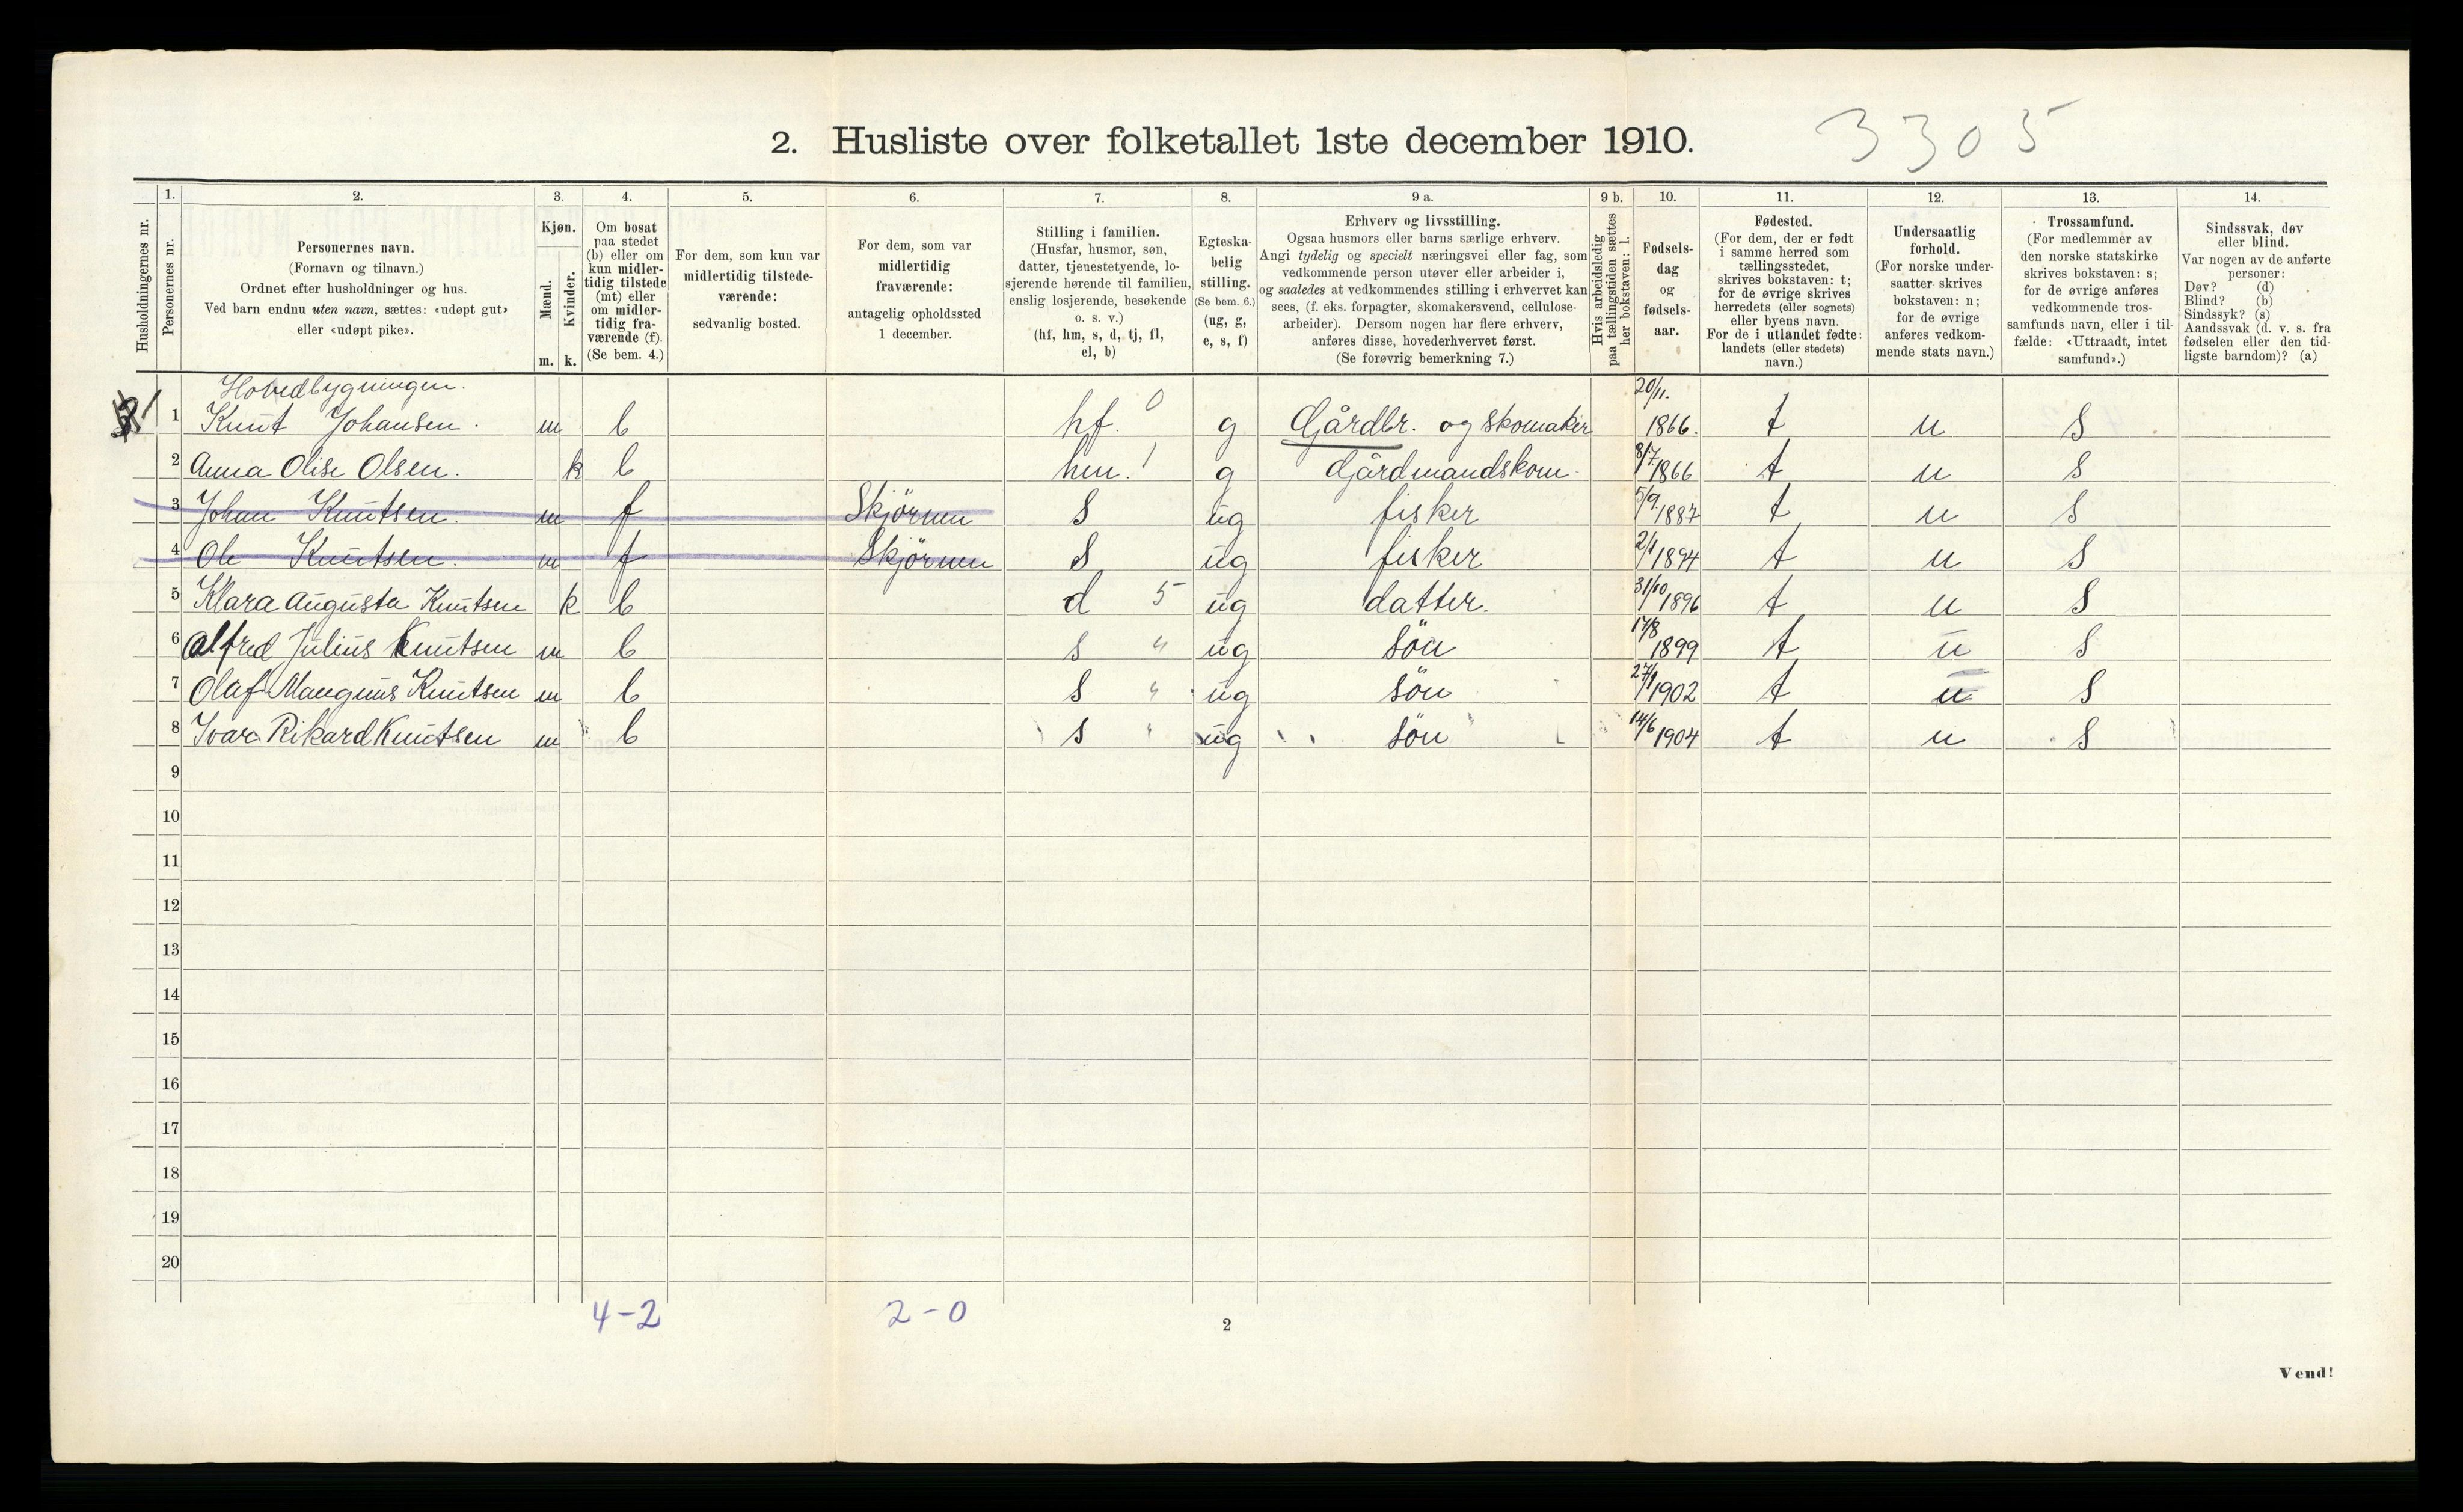 3305
2. Husliste over folketallet 1ste december 1910.
Husholdningernes nr.
1.
Personernes nr.
2.
Personernes navn.
(Fornavn og tilnavn.)
Ordnet efter husholdninger og hus.
Ved barn endnu uten navn, sættes: «udøpt gut»
eller «udøpt pike».
3.
Kjøn.
Mænd.
Kvinder.
m. k.
4.
Om bosat
paa stedet
(b) eller om
kun midler-
tidig tilstede
(mt) eller
om midler-
tidig fra-
værende (f).
(Se bem. 4.)
5.
For dem, som kun var
midlertidig tilstede-
værende:
sedvanlig bosted.
6.
For dem, som var
midlertidig
fraværende:
antagelig opholdssted
1 december.
7.
Stilling i familien.
(Husfar, husmor, søn,
datter, tjenestetyende, lo-
sjerende hørende til familien,
enslig losjerende, besøkende
o. s. v.)
(hf, hm, s, d, tj, fl,
el, b)
8.
Egteska-
belig
stilling.
(Se bem. 6.)
(ug, g,
e, s, f)
9 a.
Erhverv og livsstilling.
Ogsaa husmors eller barns særlige erhverv.
Angi tydelig og specielt næringsvei eller fag, som
vedkommende person utøver eller arbeider i,
og saaledes at vedkommendes stilling i erhvervet kan
sees, (f. eks. forpagter, skomakersvend, cellulose-
arbeider). Dersom nogen har flere erhverv,
anføres disse, hovederhvervet først.
(Se forøvrig bemerkning 7.)
9 b.
Hvis arbeidsledig
paa tællingstiden sættes
her bokstaven: l.
10.
Fødsels-
dag
og
fødsels-
aar.
11.
Fødested.
(For dem, der er født
i samme herred som
tællingsstedet,
skrives bokstaven: t;
for de øvrige skrives
herredets (eller sognets)
eller byens navn.
For de i utlandet fødte:
landets (eller stedets)
navn.)
12.
Undersaatlig
forhold.
(For norske under-
saatter skrives
bokstaven: n;
for de øvrige
anføres vedkom-
mende stats navn.)
13.
Trossamfund.
(For medlemmer av
den norske statskirke
skrives bokstaven: s;
for de øvrige anføres
vedkommende tros-
samfunds navn, eller i til-
fælde: «Uttraadt, intet
samfund».)
14.
Sindssvak, døv
eller blind.
Var nogen av de anførte
personer:
Døv? (d)
Blind? (b)
Sindssyk? (s)
Aandssvak (d. v. s. fra
fødselen eller den tid-
ligste barndom)? (a)
Hovedbygningen.
1 1 Knut Johansen. m b hf. 0 g Gårdbr. og skomaker 20/11. 1866. t n S
2 Anna Olise Olsen. k b hm. 1 g Gårdmandskon 8/7 1866 t n S
3 Johan Knutsen. m f Skjörnen S ug fisker 5/9. 1887 t n S
4 Ole Knutsen. m f Skjörnen S ug fisker 2/1 1894 t n S
5 Klara Augusta Knutsen k b d 5 ug datter. 31/10 1896 t n S
6 Alfred Julius Knutsen m b s " ug sön 17/8 1899 t n S
7 Olaf Mangnus Knutsen m b s " ug sön 27/9 1902 t n S
8 Ivar Rikard Knutsen m b s " ug sön 14/6 1904 t n S
9
10
11
12
13
14
15
16
17
18
19
20
4-2 2-0
2
Vend!